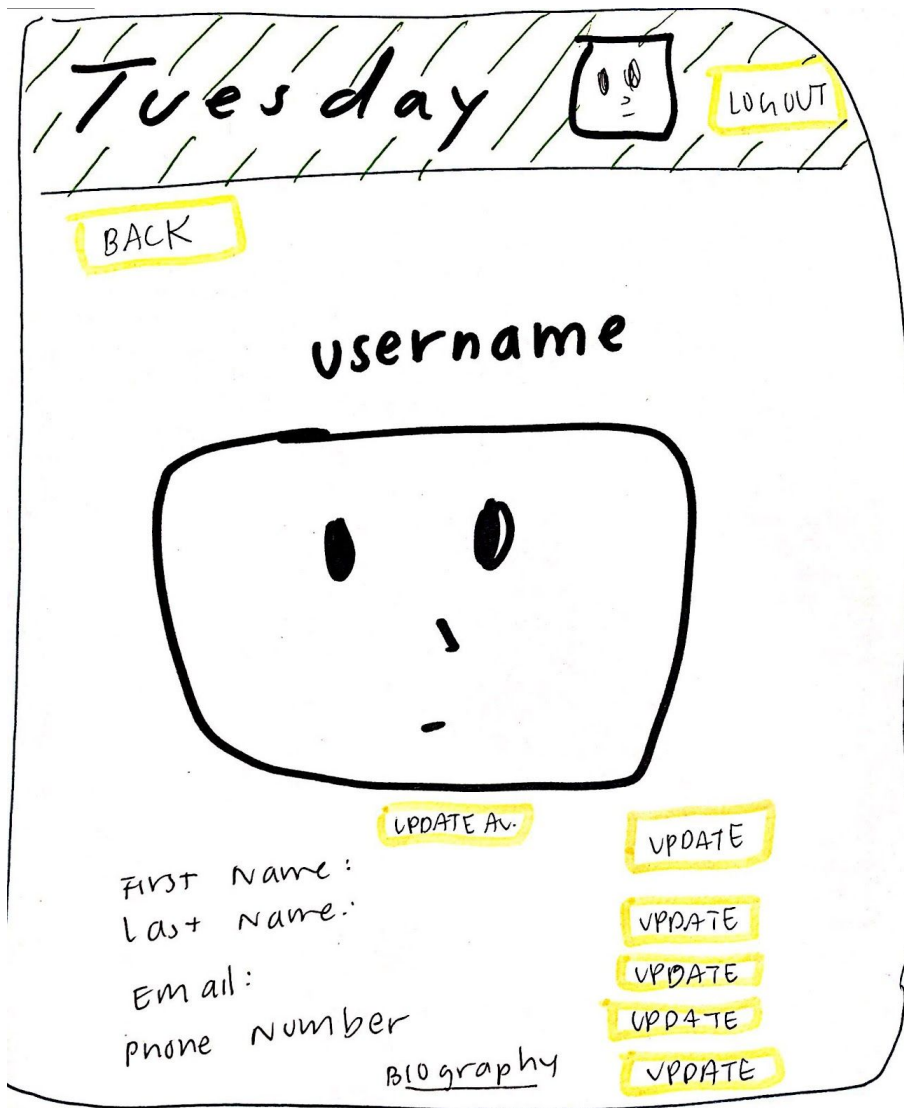 Tuesday LOGOUT
BACK
username
UPDATE AV.
UPDATE
First Name:
Last Name:
UPDATE
Email:
UPDATE
Phone Number
UPDATE
Biography
UPDATE